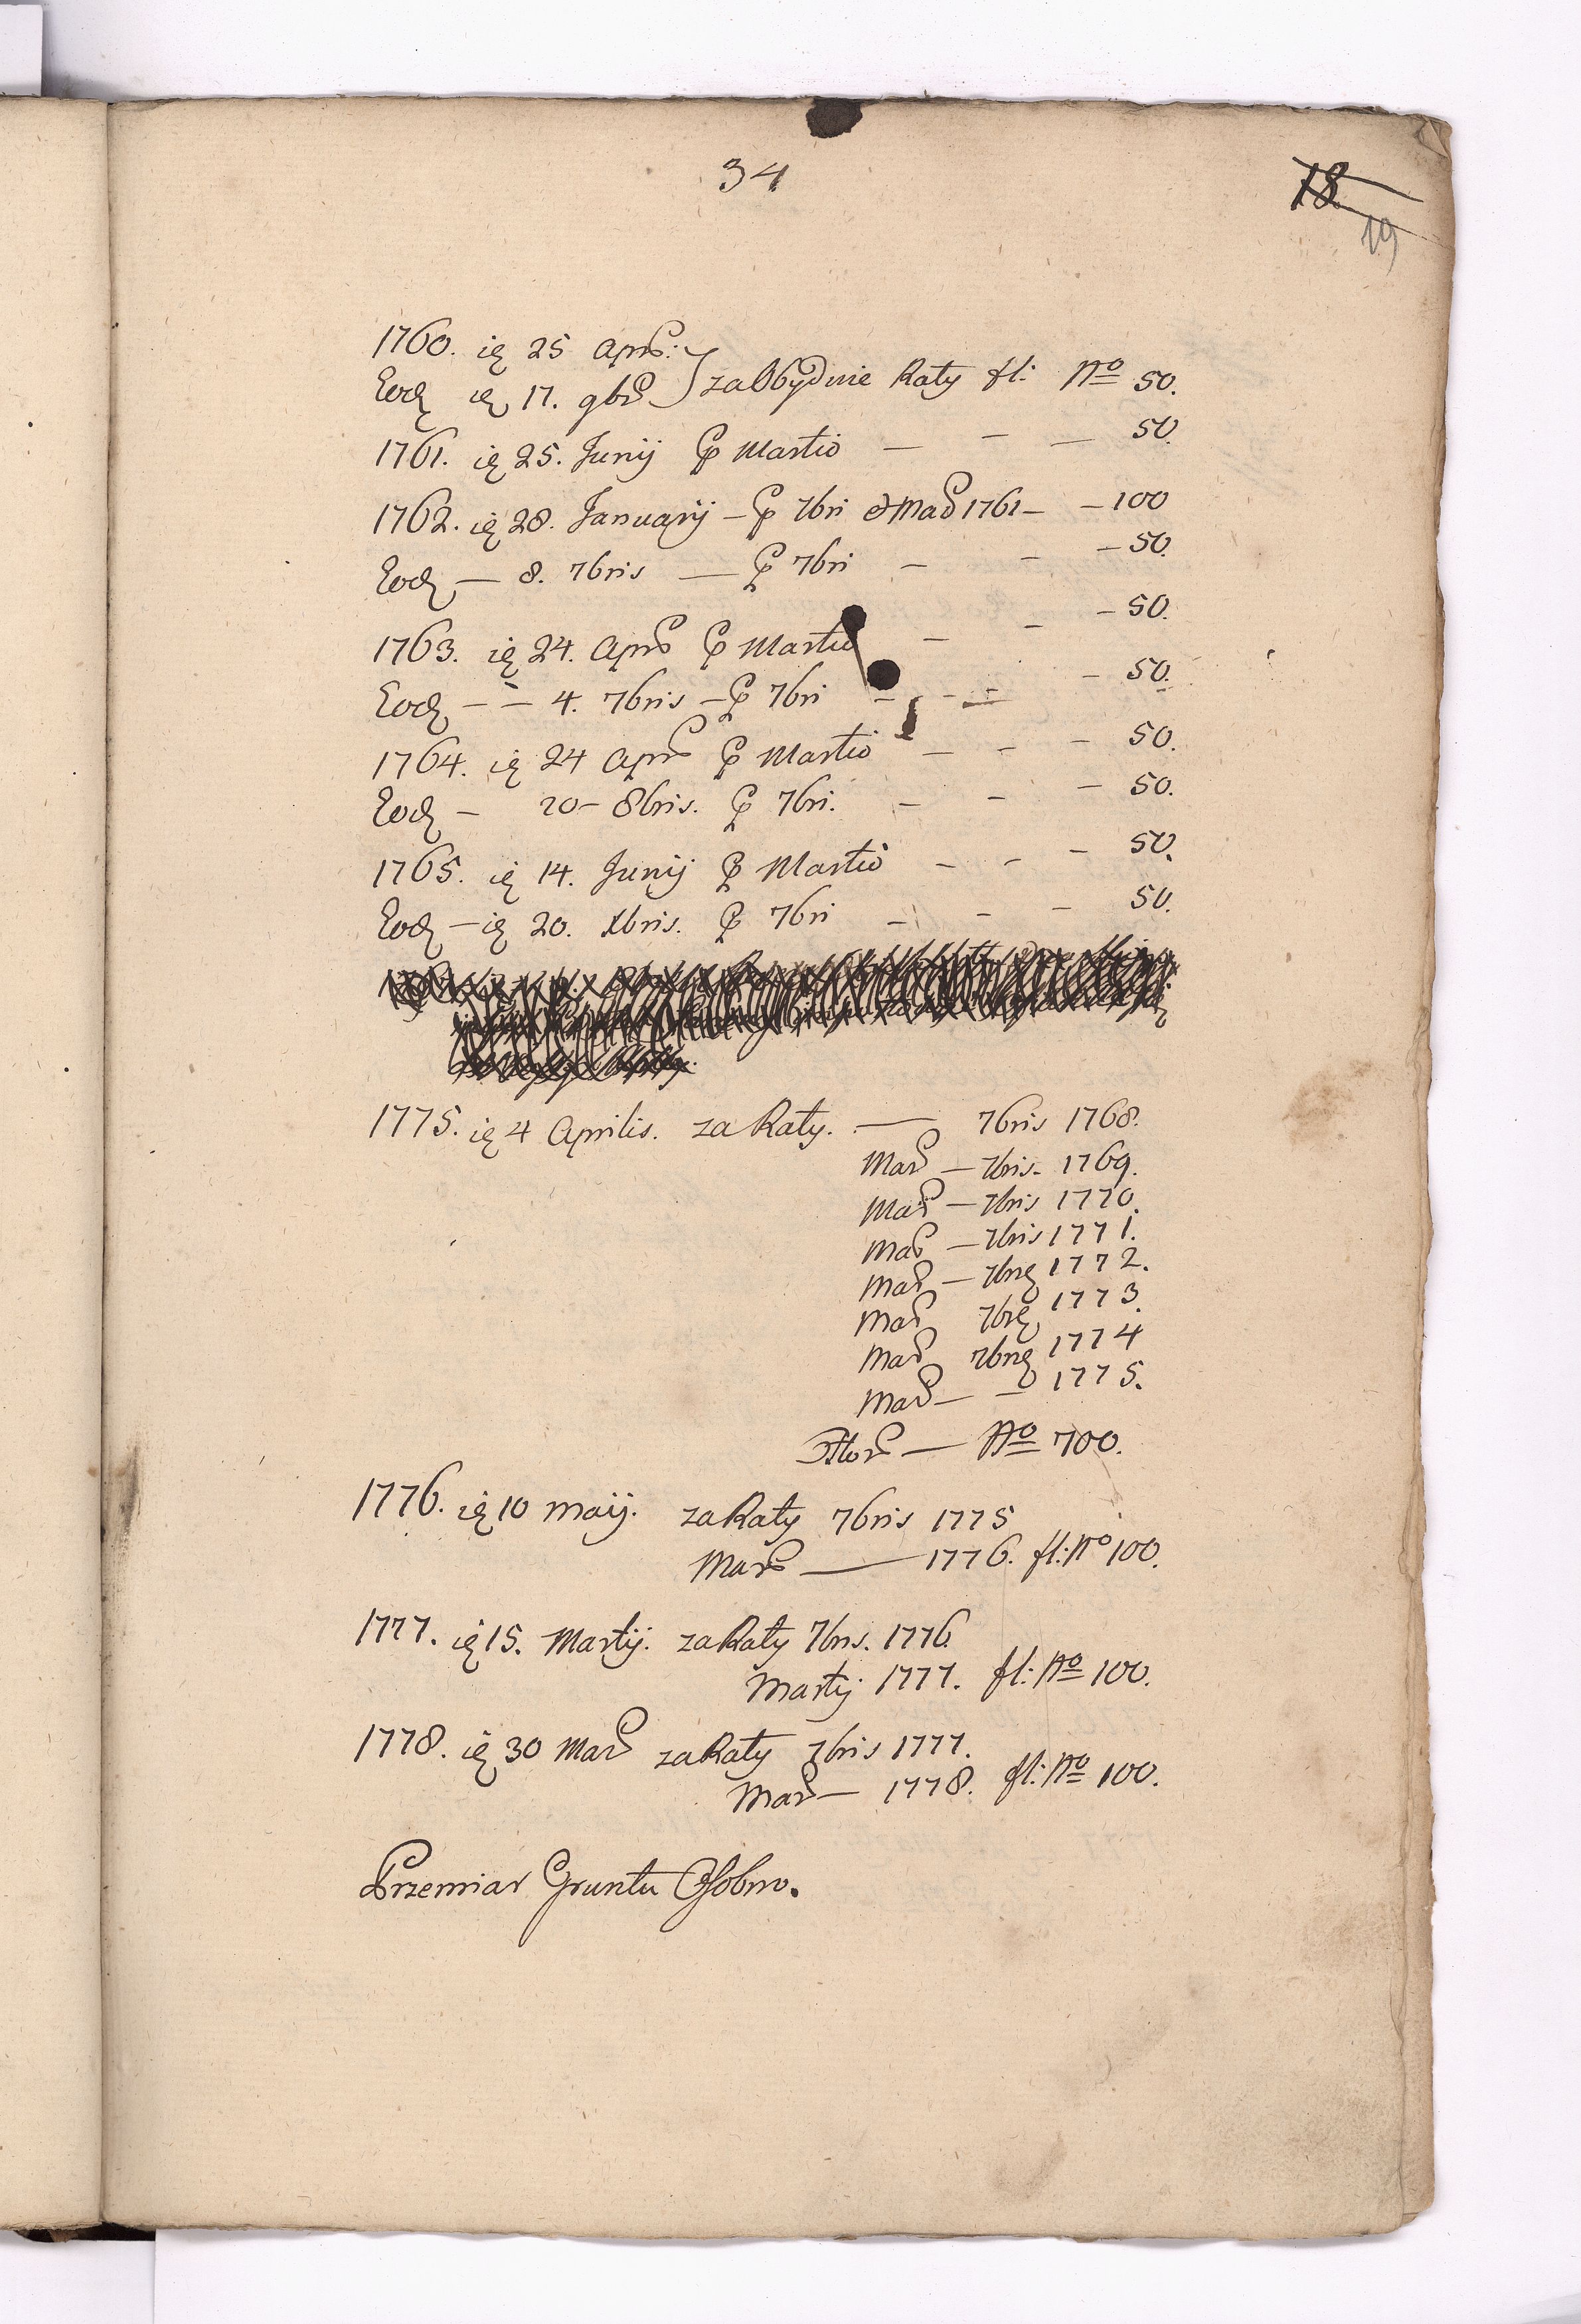 34
18
19
1760. ię 25 Apr:
Eod ię 17. 9br } za Obydwie Raty fl: No 50.
1761. ię 25. Junij p Martio — — — 50.
1762. ię 28. Januarij — p 7bri & Mar 1761 — — 100
Eod — 8. 7bris — p 7bri — — — 50.
1763. ię 24. Apr p Martio — — — 50.
Eod — — 4. 7bris — p 7bri — — — — 50.
1764. ię 24 Apr p Martio — — — 50.
Eod — 20 — 8bris. p 7bri. — — — 50.
1765. ię 14. Junij p Martio — — — 50.
Eod — ię 20. Xbris. p 7bri — — — 50.
1775. ię 4 Aprilis. za Raty. — 7bris 1768.
Mar — 7bris. 1769.
Mar — 7bris 1770.
Mar — 7bris 1771.
Mar — 7brę 1772.
Mar 7brę 1773.
Mar 7brę 1774
Mar — — 1775.
Flor — No 700.
1776. ię 10 Maij. za Raty 7bris 1775
Mar — 1776. fl: No 100.
1777. ię 15. Martij. za Raty 7bris. 1776.
Martij 1777. fl: No 100.
1778. ię 30 Mar za Raty 7bris 1777.
Mar — 1778. fl: No 100.
Przemiar Gruntu Osobno.